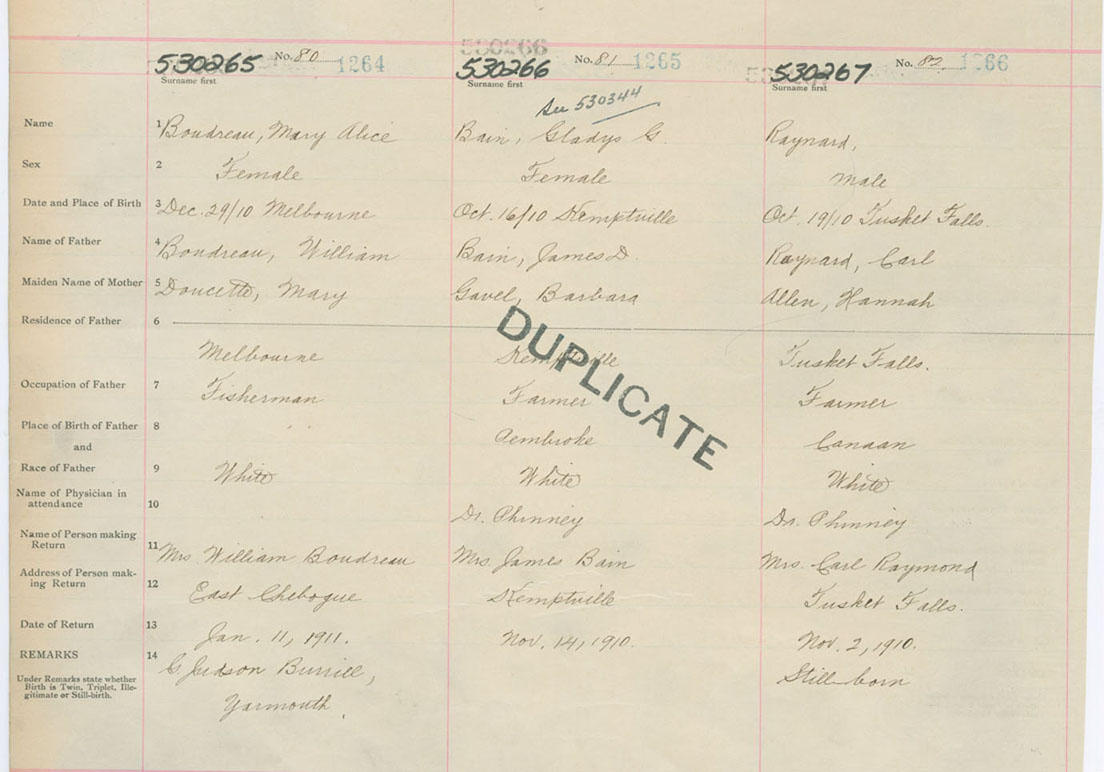 530266
530265 No. 80 1264 530266 No. 81 1265 530267 No. 82 1266
Surname first Surname first Surname first
See 530344
Name 1 Boudreau, Mary Alice Bain, Gladys G. Raynard,
Sex 2 Female Female Male
Date and Place of Birth 3 Dec. 29/10 Melbourne Oct. 16/10 Kemptville Oct. 19/10 Tusket Falls.
Name of Father 4 Boudreau, William Bain, James D. Raynard, Carl
Maiden Name of Mother 5 Doucette, Mary Gavel, Barbara Allen, Hannah
Residence of Father 6
Melbourne Kemptville Tusket Falls.
DUPLICATE
Occupation of Father 7 Fisherman Farmer Farmer
Place of Birth of Father 8 Pembroke Canaan
and
Race of Father 9 White White White
Name of Physician in
attendance 10 Dr. Phinney Dr. Phinney
Name of Person making
Return 11 Mrs William Boudreau Mrs. James Bain Mrs. Carl Raymond
Address of Person mak-
ing Return 12 East Chebogue Kemptville Tusket Falls.
Date of Return 13 Jan. 11, 1911. Nov. 14, 1910. Nov. 2, 1910.
REMARKS 14 G. Judson Burrill, Still-born
Under Remarks state whether
Birth is Twin, Triplet, Ille-
gitimate or Still-birth.
Yarmouth.